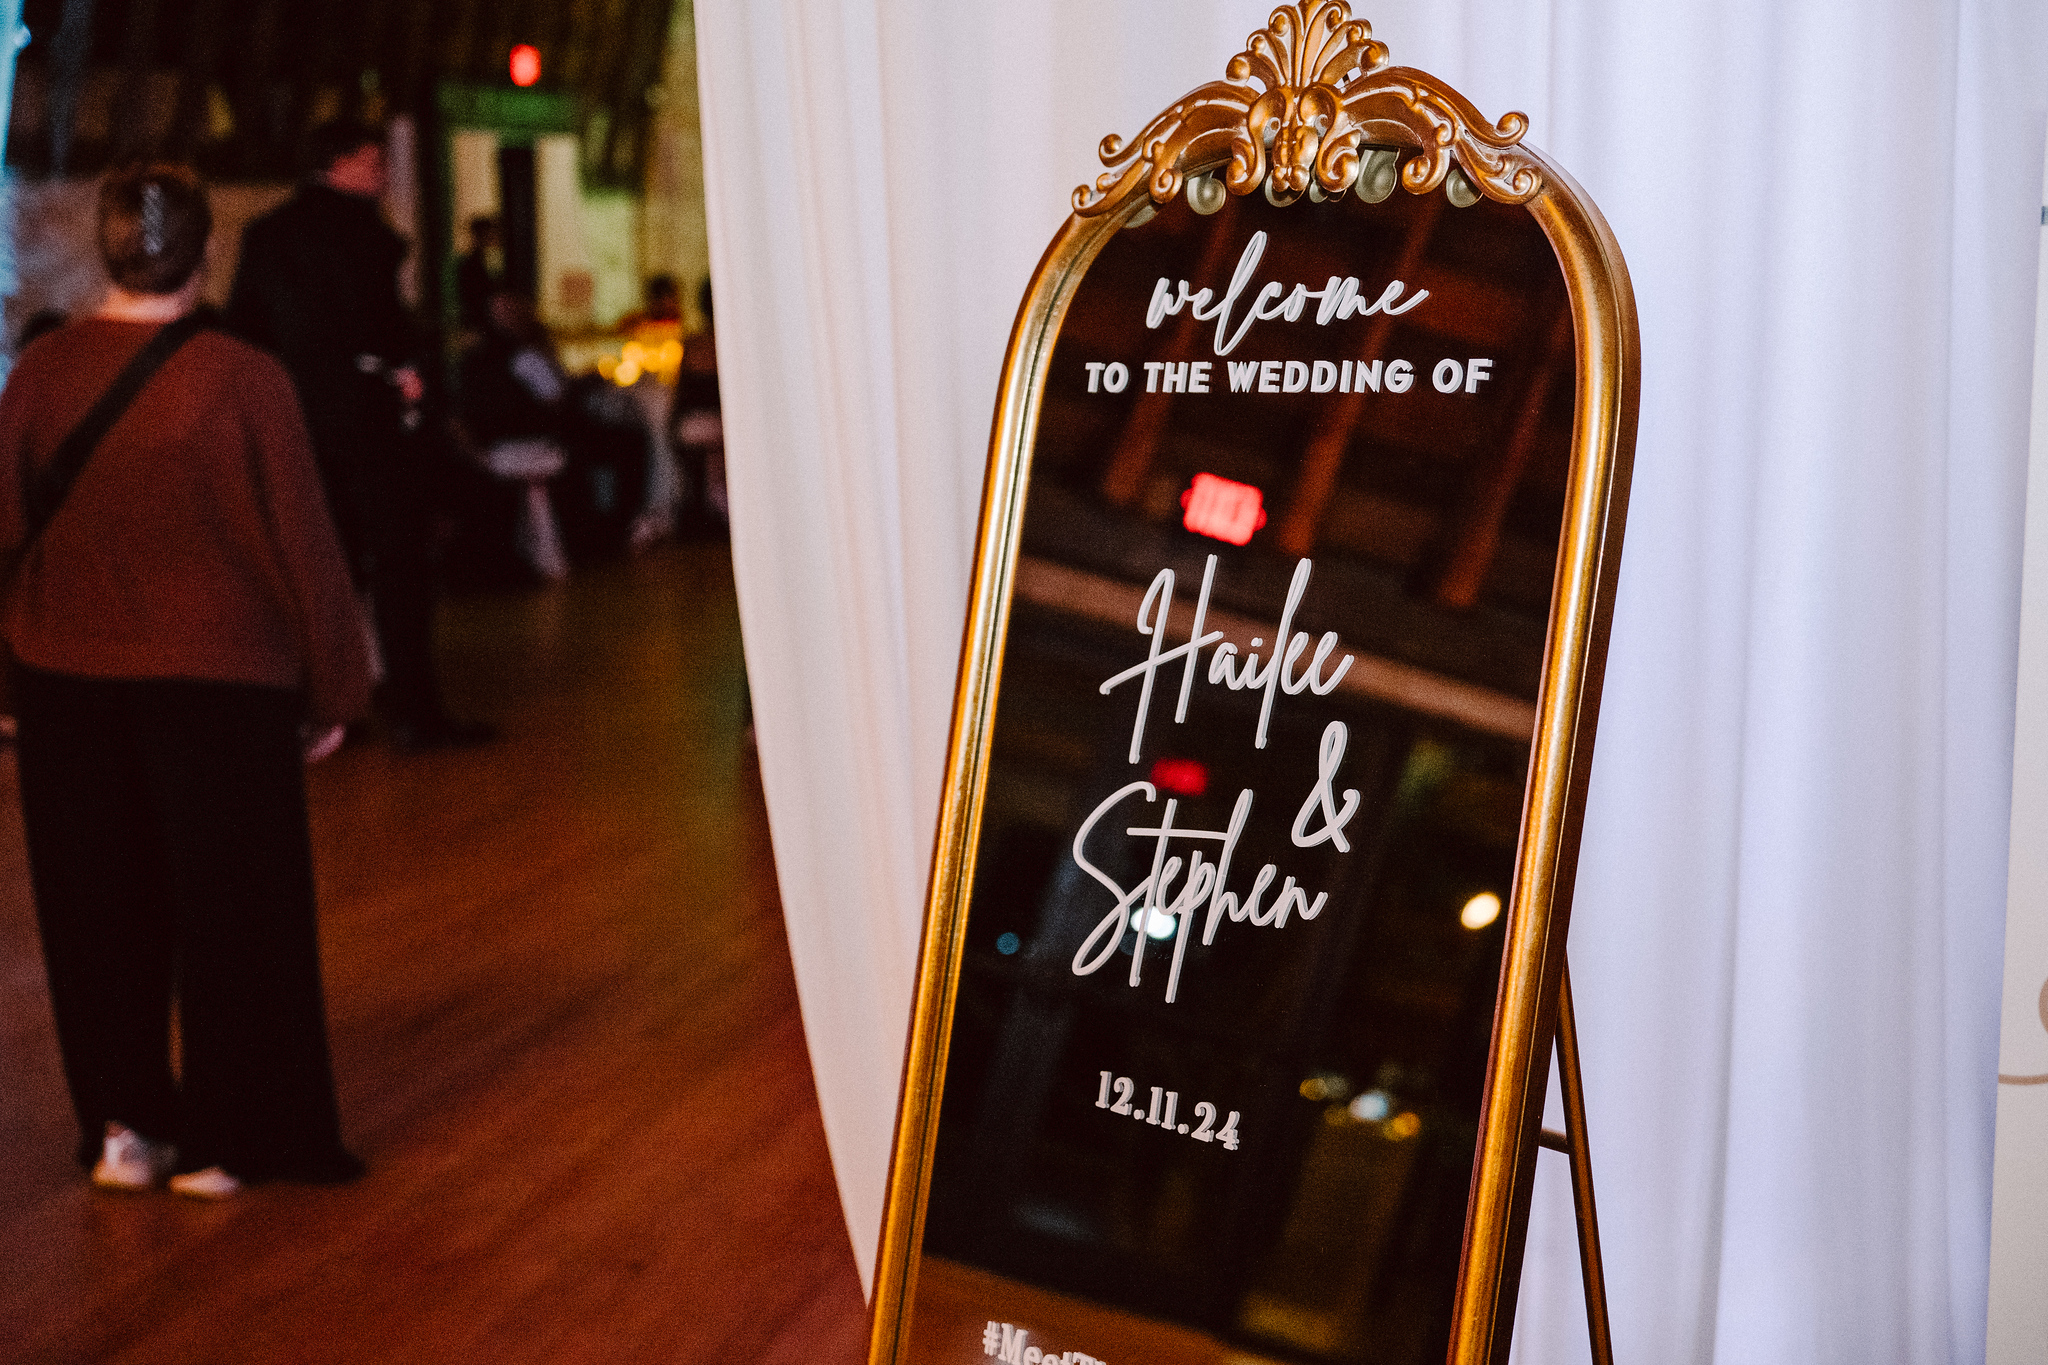 welcome
TO THE WEDDING OF
Hailee
&
Stephen
12.11.24